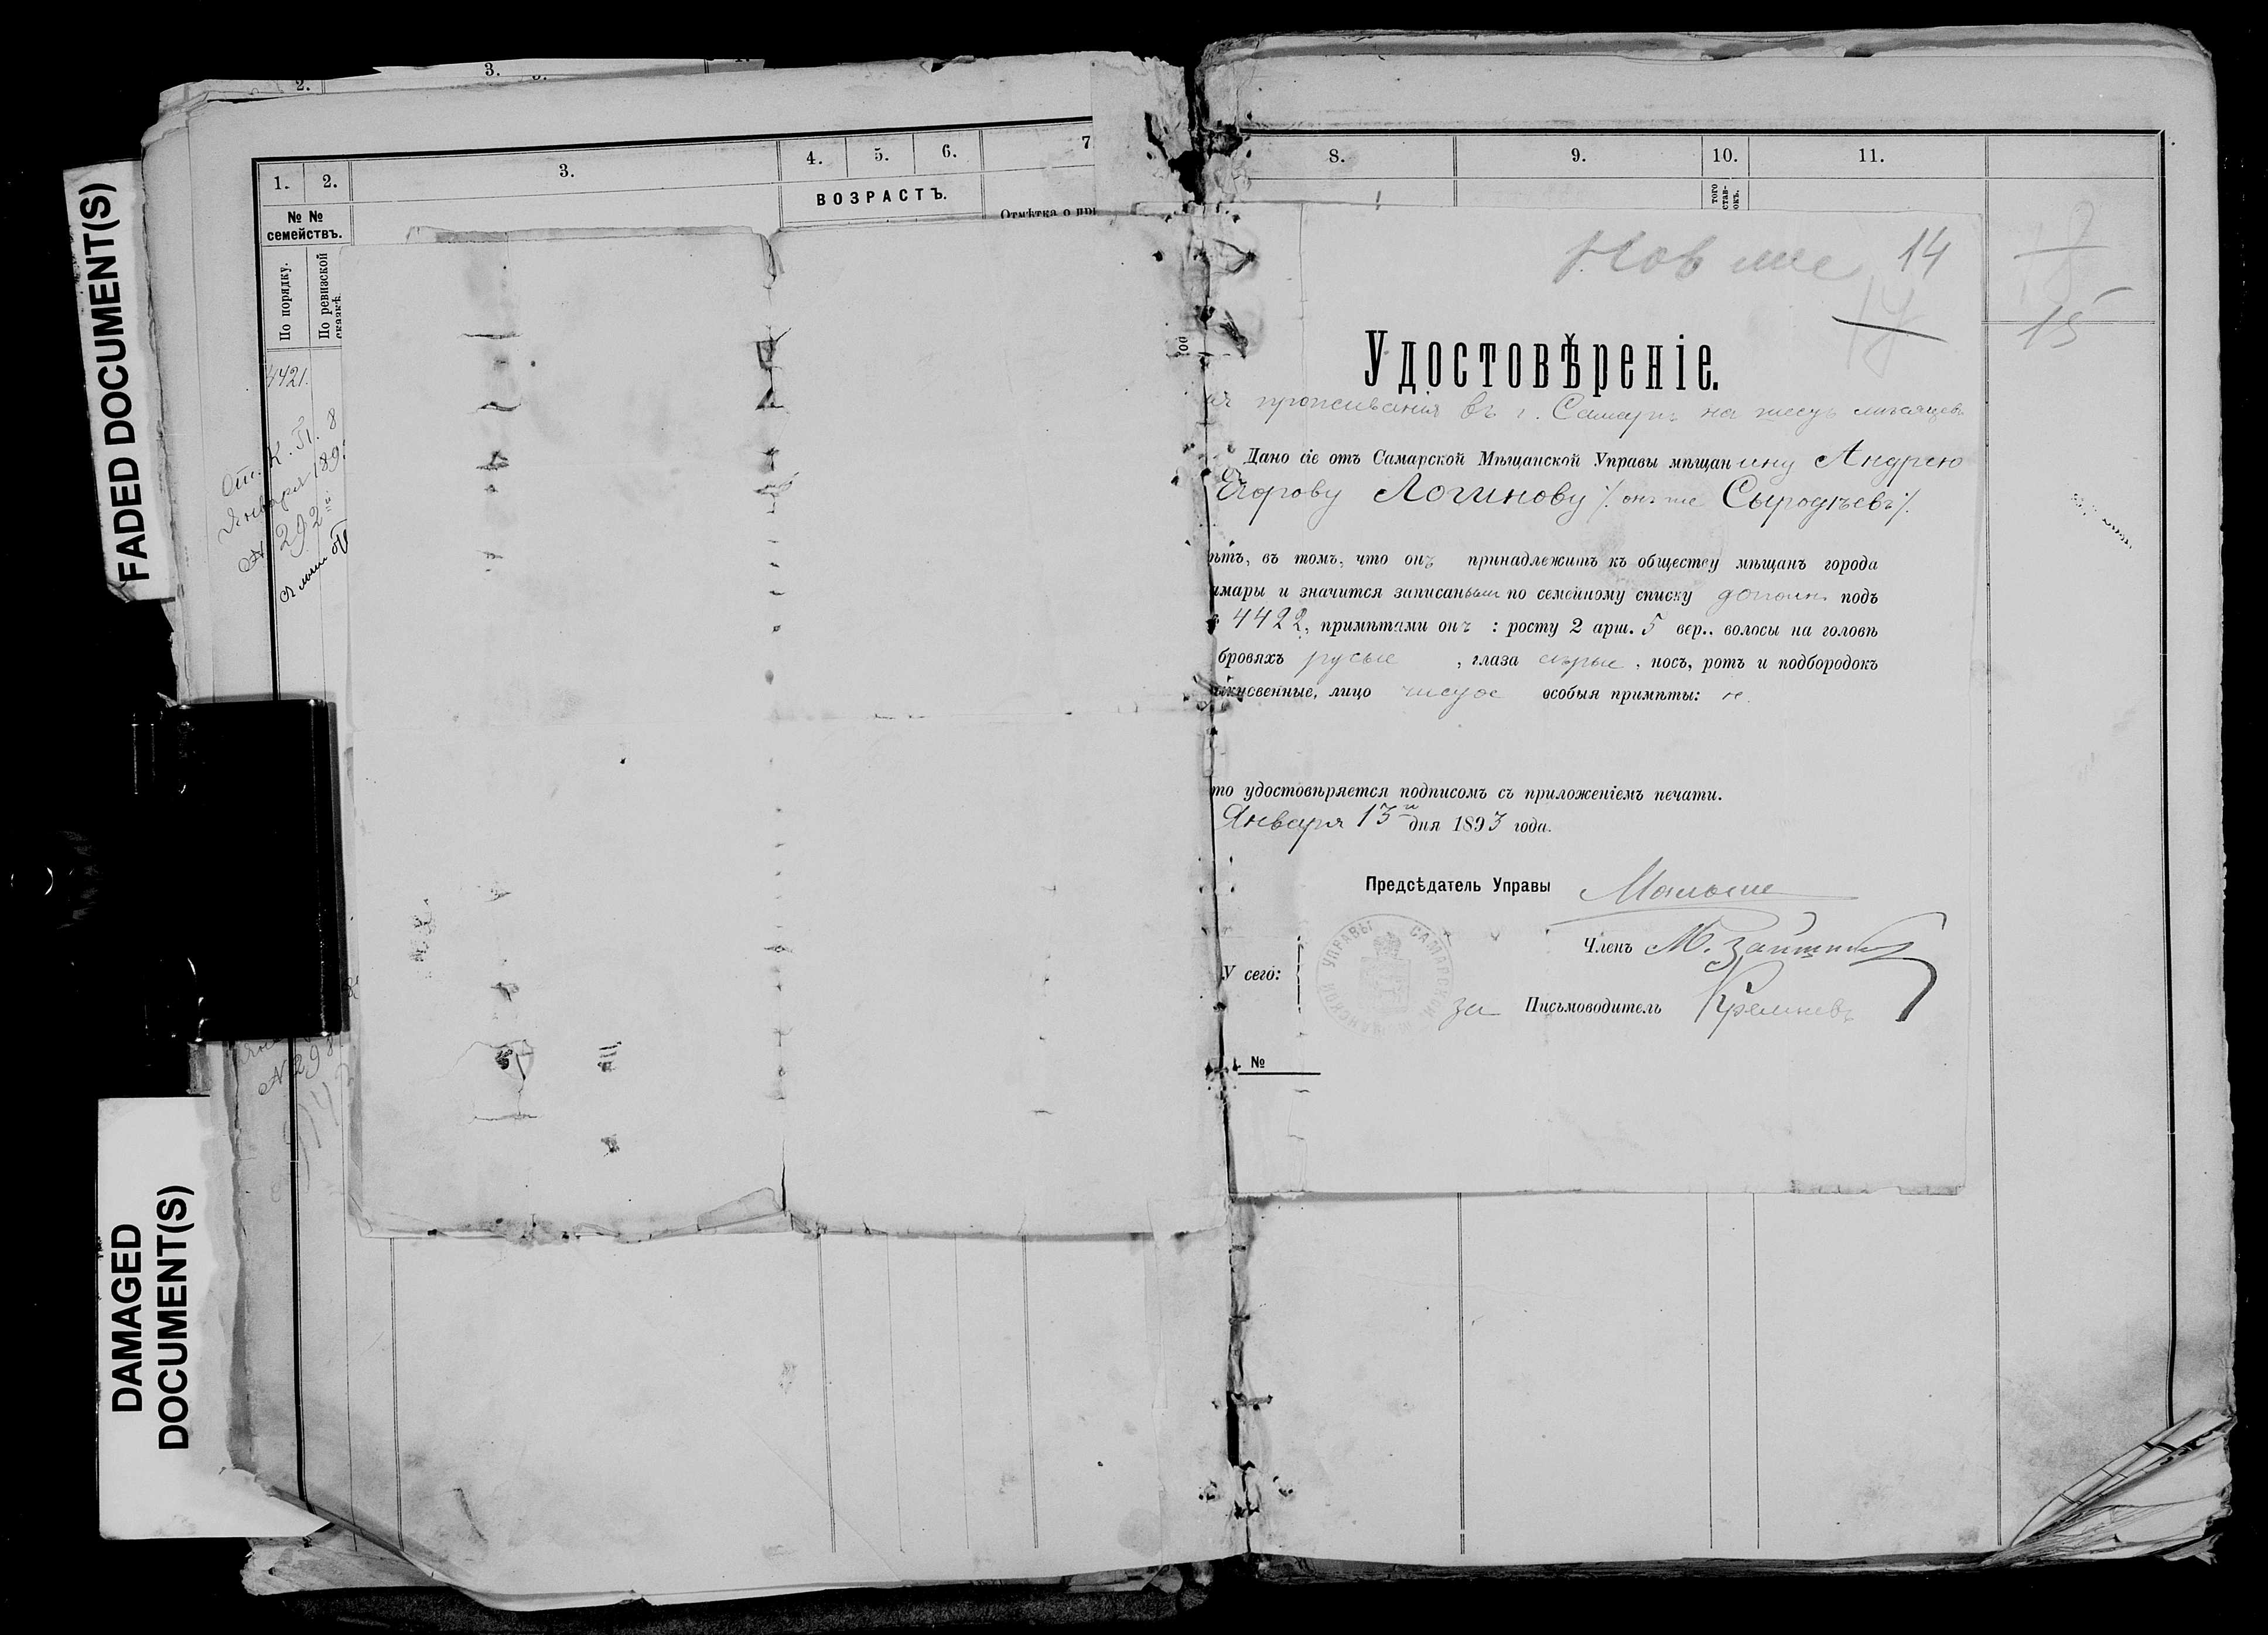 FADED DOCUMENT(S)
DAMAGED
DOCUMENT(S)
2.
3.
1.
2.
3.
4.
5.
6.
7
№ №
семействъ.
ВОЗРАСТЪ.
Отмѣтка о при
По порядку.
По ревизской
сказкѣ.
4421.
Января 189
292
№ 298
8.
9.
10.
11.
того
став-
окъ.
14
15
Удостовѣреніе.
проживанія въ г. Самарѣ на шесть мѣсяцевъ
Дано сіе отъ Самарской Мѣщанской Управы мѣщанину Андрею
Егорову Логинову /: онъ же Сыродѣевъ :/
ѣтъ, въ томъ, что онъ принадлежитъ къ обществу мѣщанъ города
амары и значится записаннымъ по семейному списку дополн. подъ
4422, примѣтами онъ : росту 2 арш. 5 вер.. волосы на головѣ
бровяхъ русые , глаза сѣрые , носъ, ротъ и подбородокъ
ыкновенные, лицо чистое особыя примѣты: н.
то удостовѣряется подписомъ съ приложеніемъ печати.
Января 13 дня 1893 года.
Предсѣдатель Управы
Членъ М.
У сего:
за Письмоводитель Кремневъ
САМАРСКОЙ МѢЩАНСКОЙ УПРАВЫ
№